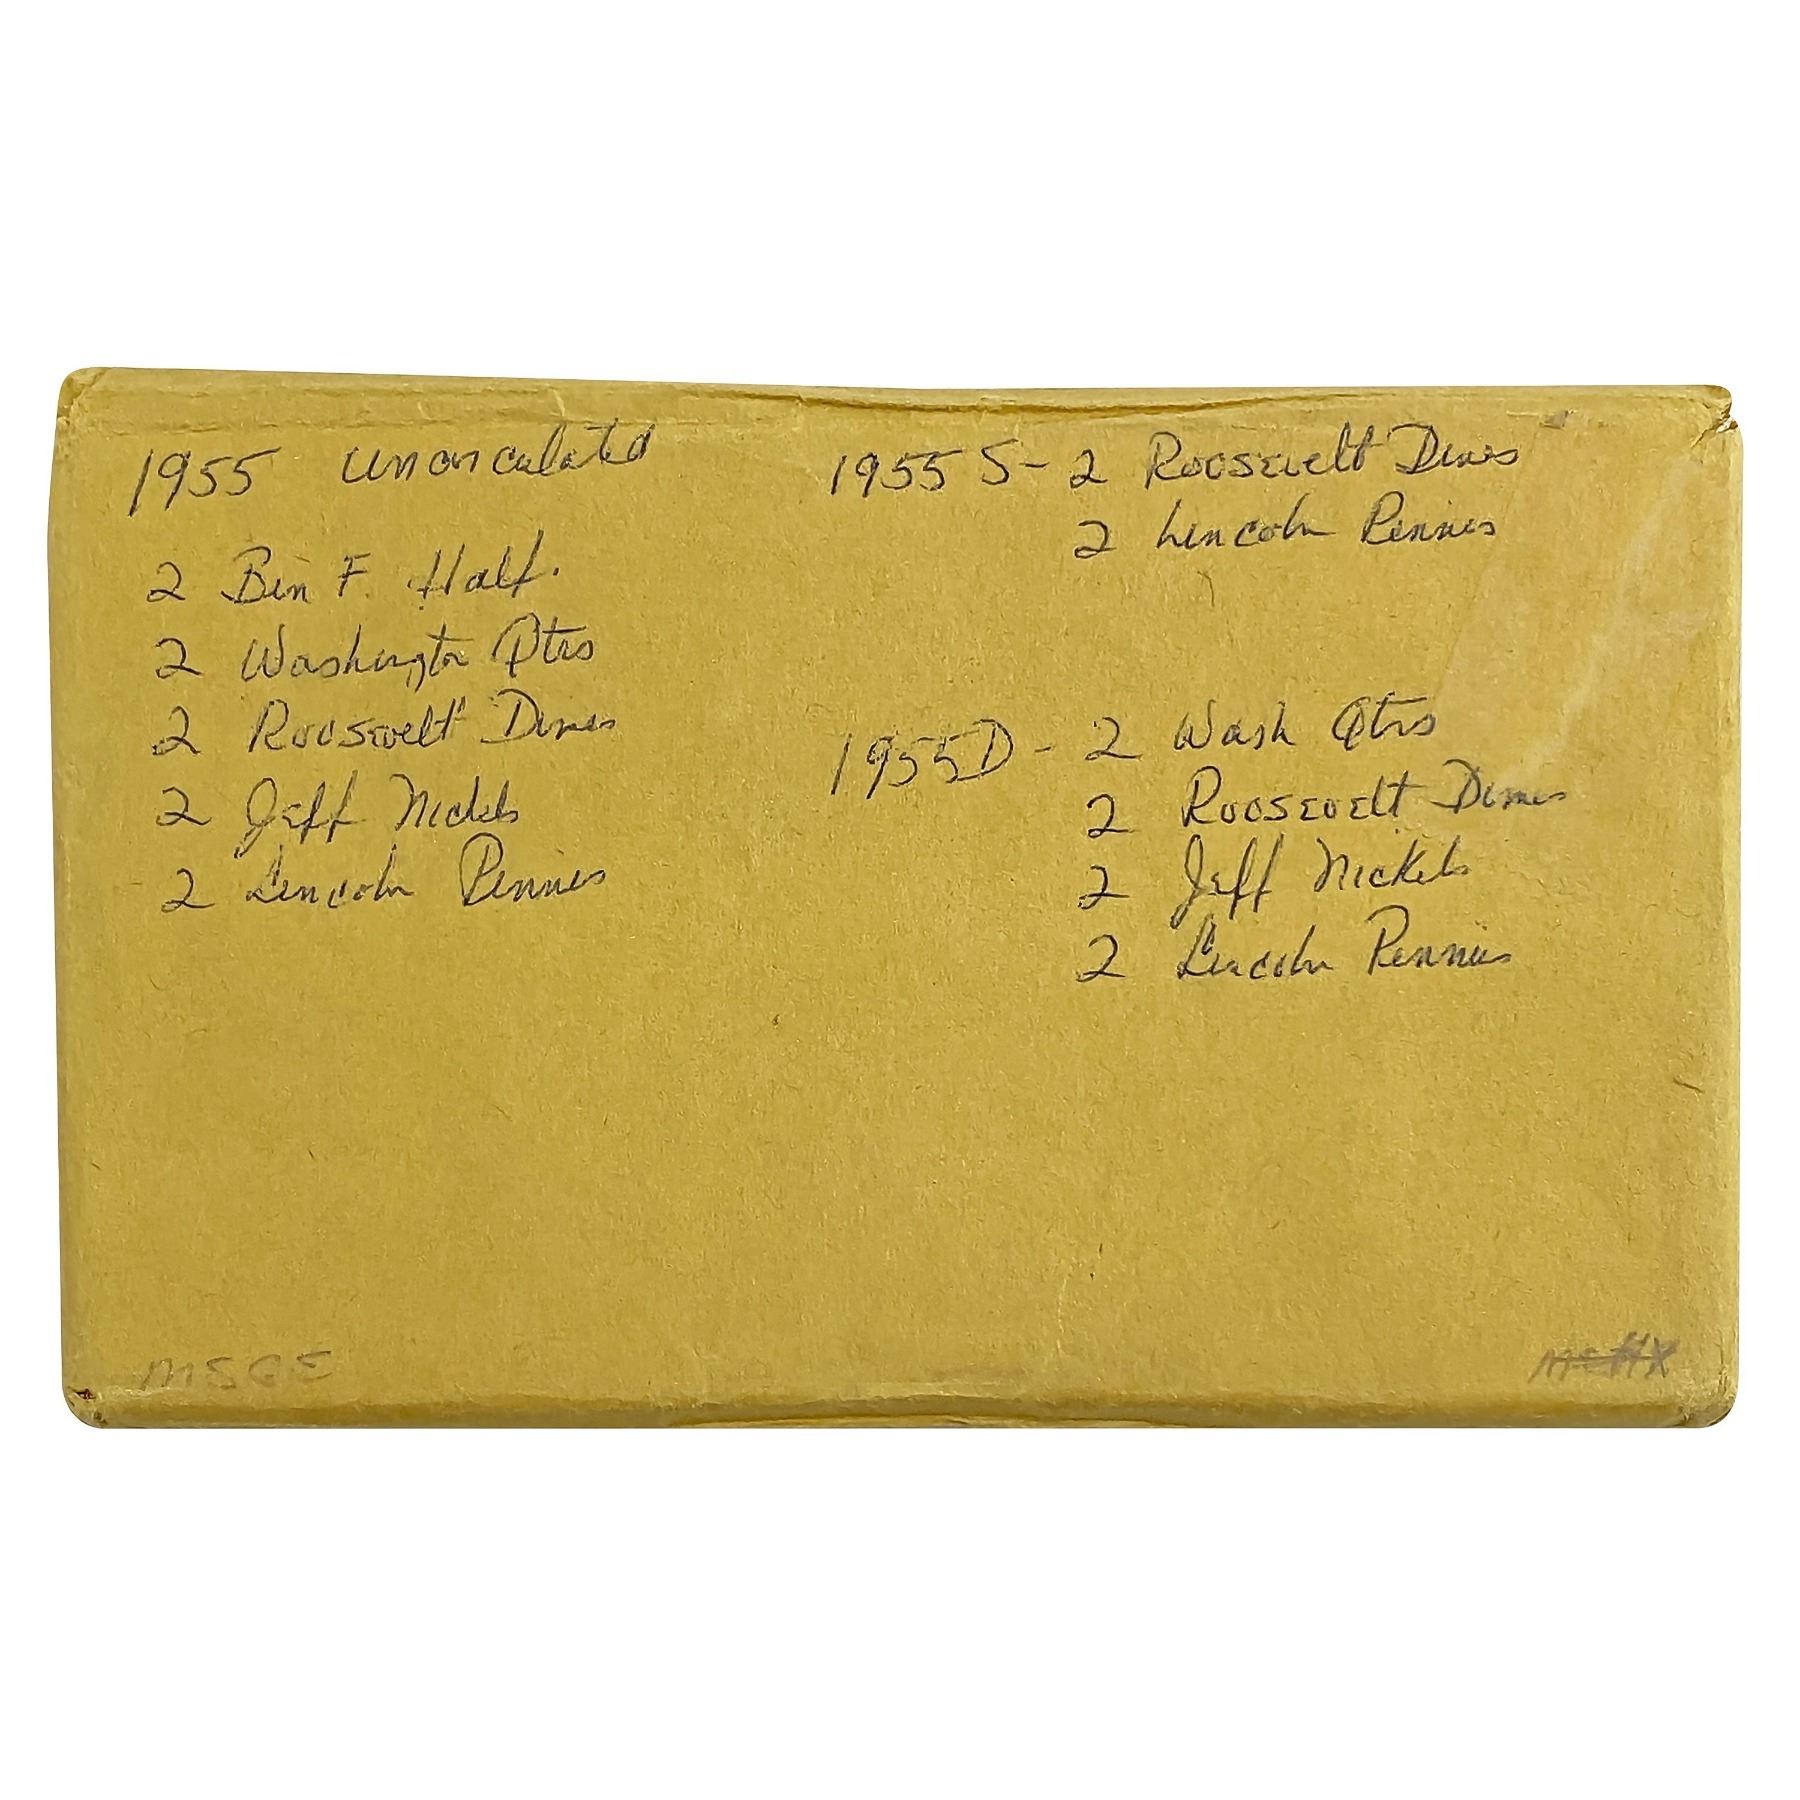 1955 Uncirculated
2 Ben F. Half.
2 Washington Qtrs
2 Roosevelt Dimes
2 Jeff Nickels
2 Lincoln Pennies
1955 S- 2 Roosevelt Dimes
2 Lincoln Pennies
1955D - 2 Wash Qtrs
2 Roosevelt Dimes
2 Jeff Nickels
2 Lincoln Pennies